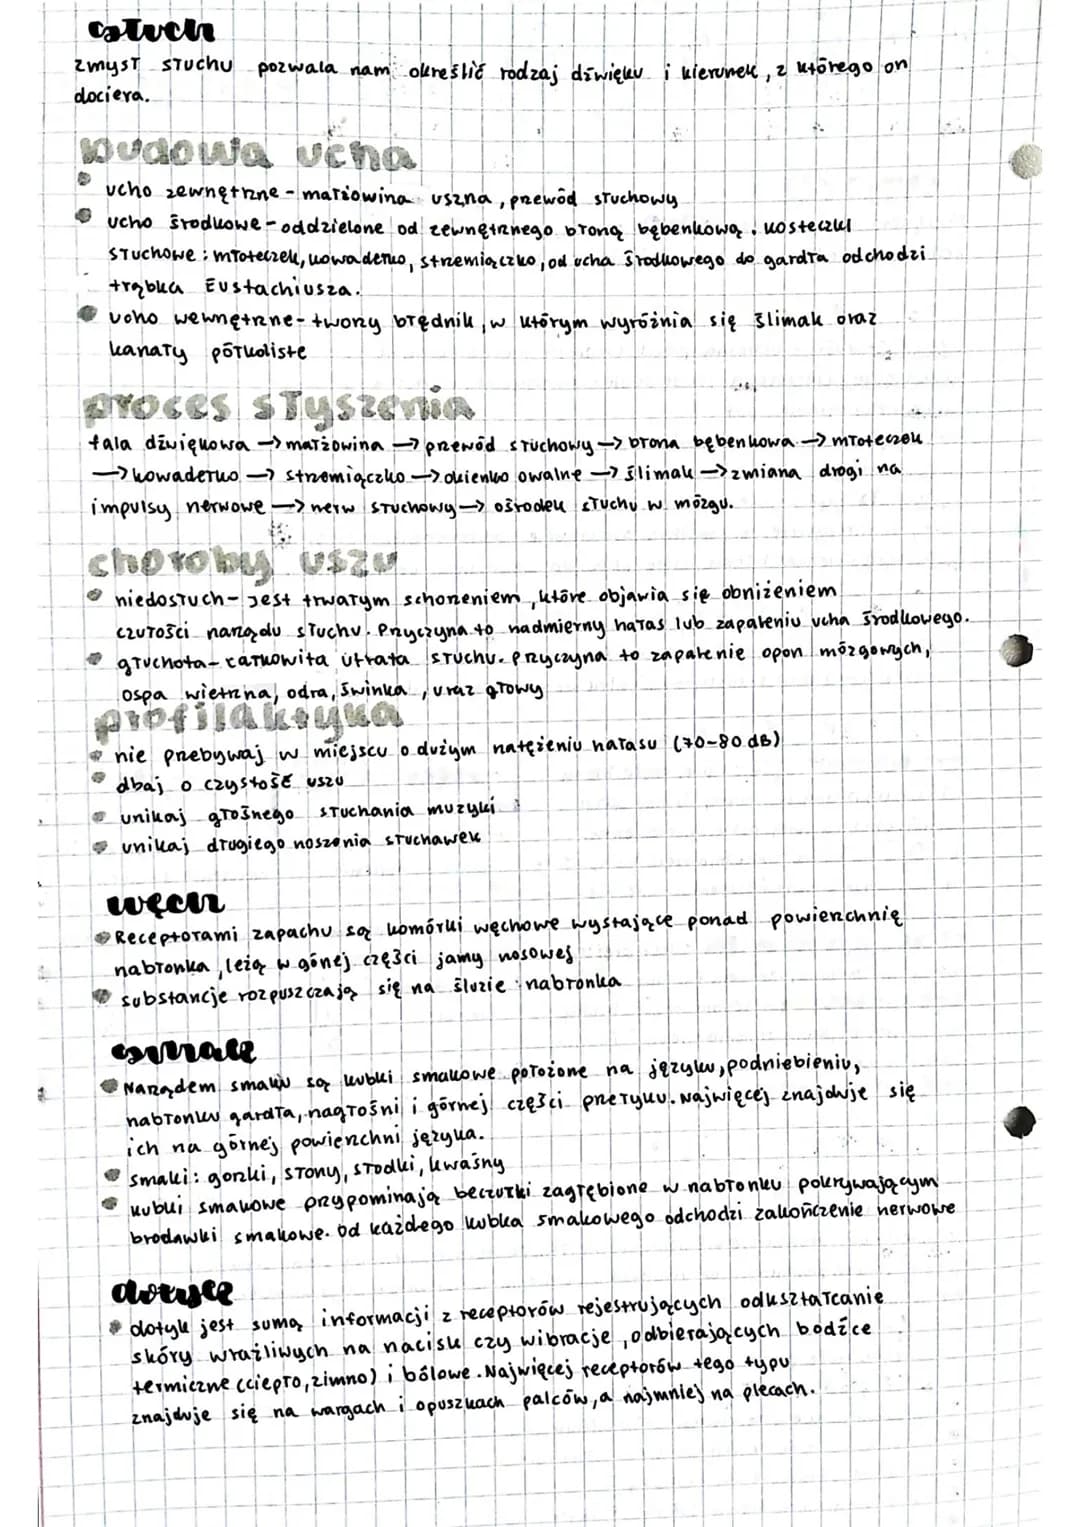 słuch
zmysł słuchu pozwala nam określić rodzaj dźwięku i kierunek, z którego on
dociera.
budowa ucha
ucho zewnętrzne - małżowina uszna, przewód słuchowy
ucho środkowe - oddzielone od zewnętrznego błoną bębenkową. kosteczki
słuchowe: młoteczek, kowadełko, strzemiączko, od ucha środkowego do gardła odchodzi
trąbka Eustachiusza.
ucho wewnętrzne - tworzy błędnik, w którym wyróżnia się ślimak oraz
kanały półkoliste
proces słyszenia
fala dźwiękowa → małżowina → przewód słuchowy → błona bębenkowa → młoteczek
→ kowadełko → strzemiączko → okienko owalne → ślimak → zmiana drogi na
impulsy nerwowe → nerw słuchowy → ośrodek słuchu w mózgu.
choroby uszu
niedosłuch - jest trwałym schorzeniem, które objawia się obniżeniem
czułości narządu słuchu. Przyczyna to nadmierny hałas lub zapaleniu ucha środkowego.
głuchota - całkowita utrata słuchu. Przyczyna to zapalenie opon mózgowych,
ospa wietrzna, odra, świnka, uraz głowy
profilaktyka
nie przebywaj w miejscu o dużym natężeniu hałasu (70-80 dB)
dbaj o czystość uszu
unikaj głośnego słuchania muzyki
unikaj długiego noszenia słuchawek
węch
Receptorami zapachu są komórki węchowe wystające ponad powierzchnię
nabłonka, leżą w górnej części jamy nosowej
substancje rozpuszczają się na śluzie nabłonka
smak
Narządem smaku są kubki smakowe położone na języku, podniebieniu,
nabłonku gardła, nagłośni i górnej części przełyku. Najwięcej znajduje się
ich na górnej powierzchni języka.
smaki: gorzki, słony, słodki, kwaśny
kubki smakowe przypominają beczułki zagłębione w nabłonku pokrywającym
brodawki smakowe. Od każdego kubka smakowego odchodzi zakończenie nerwowe
dotyk
dotyk jest sumą informacji z receptorów rejestrujących odkształcanie
skóry wrażliwych na nacisk czy wibracje, odbierających bodźce
termiczne (ciepło, zimno) i bólowe. Najwięcej receptorów tego typu
znajduje się na wargach i opuszkach palców, a najmniej na plecach.